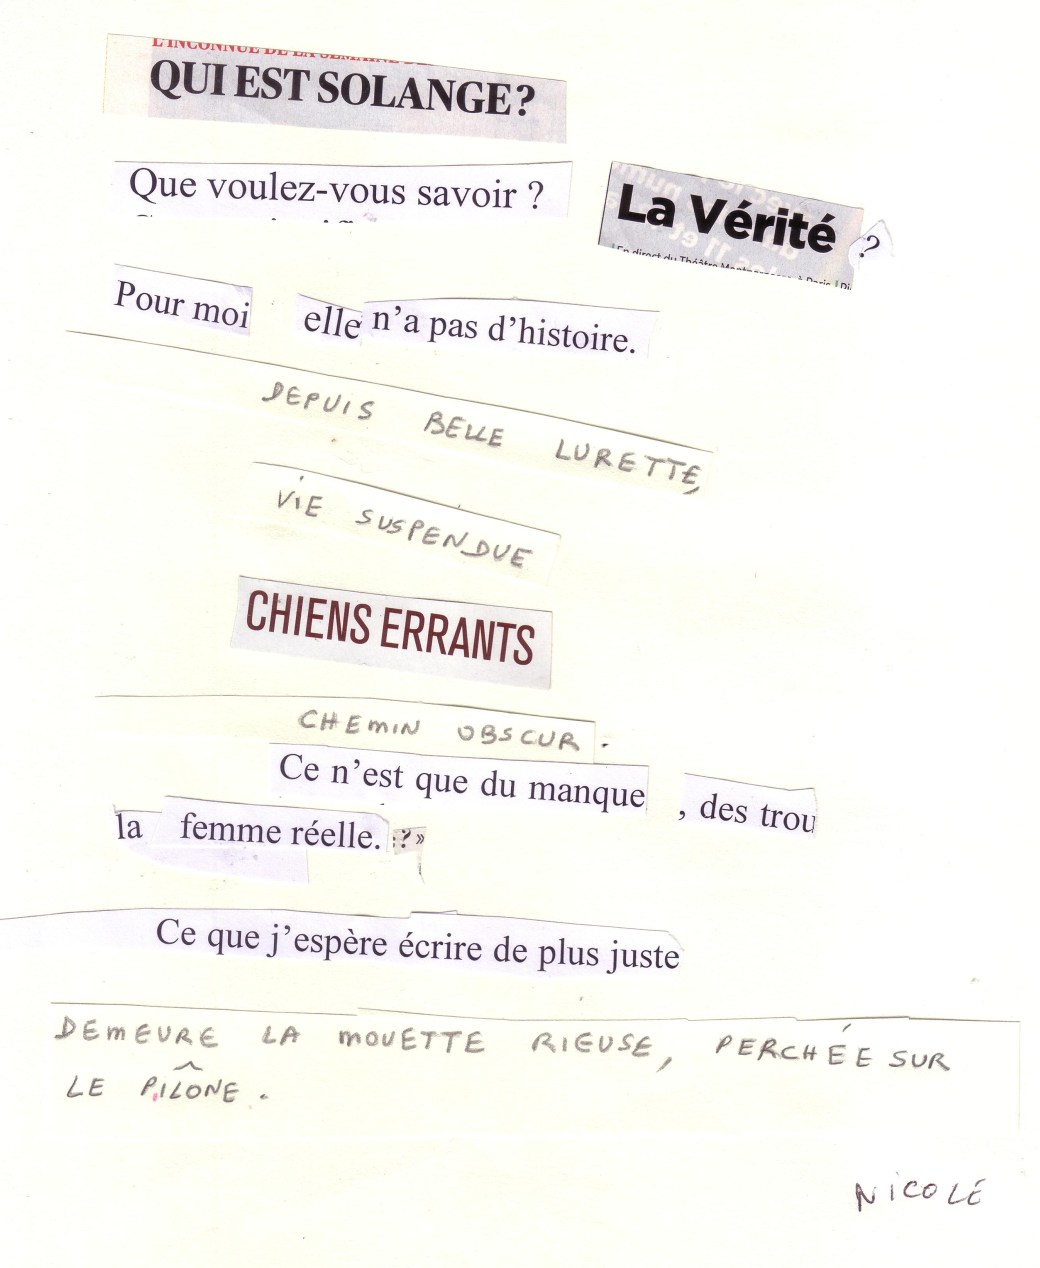 L'INCONNUE DE LA SEMAINE
QUI EST SOLANGE?
Que voulez-vous savoir ?
La Vérité ?
En direct du Théâtre
Pour moi elle n'a pas d'histoire.
DEPUIS BELLE LURETTE,
ViE SUSPENDUE
CHIENS ERRANTS
CHEmiN OBSCUR.
Ce n'est que du manque , des trou
la femme réelle. ? »
Ce que j'espère écrire de plus juste
DEmEURE LA mOUETTE RIEUSE, PERCHÉE SUR
LE PILÔNE.
NiCOLE